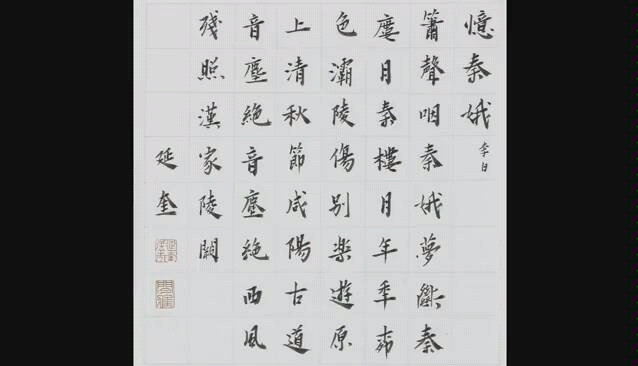 憶秦娥 李白
簫聲咽秦娥夢斷秦
月秦樓月年年柳
色灞陵傷別樂遊原
上清秋節咸陽古道
音塵絕音塵絕西風
殘照漢家陵闕
延奎